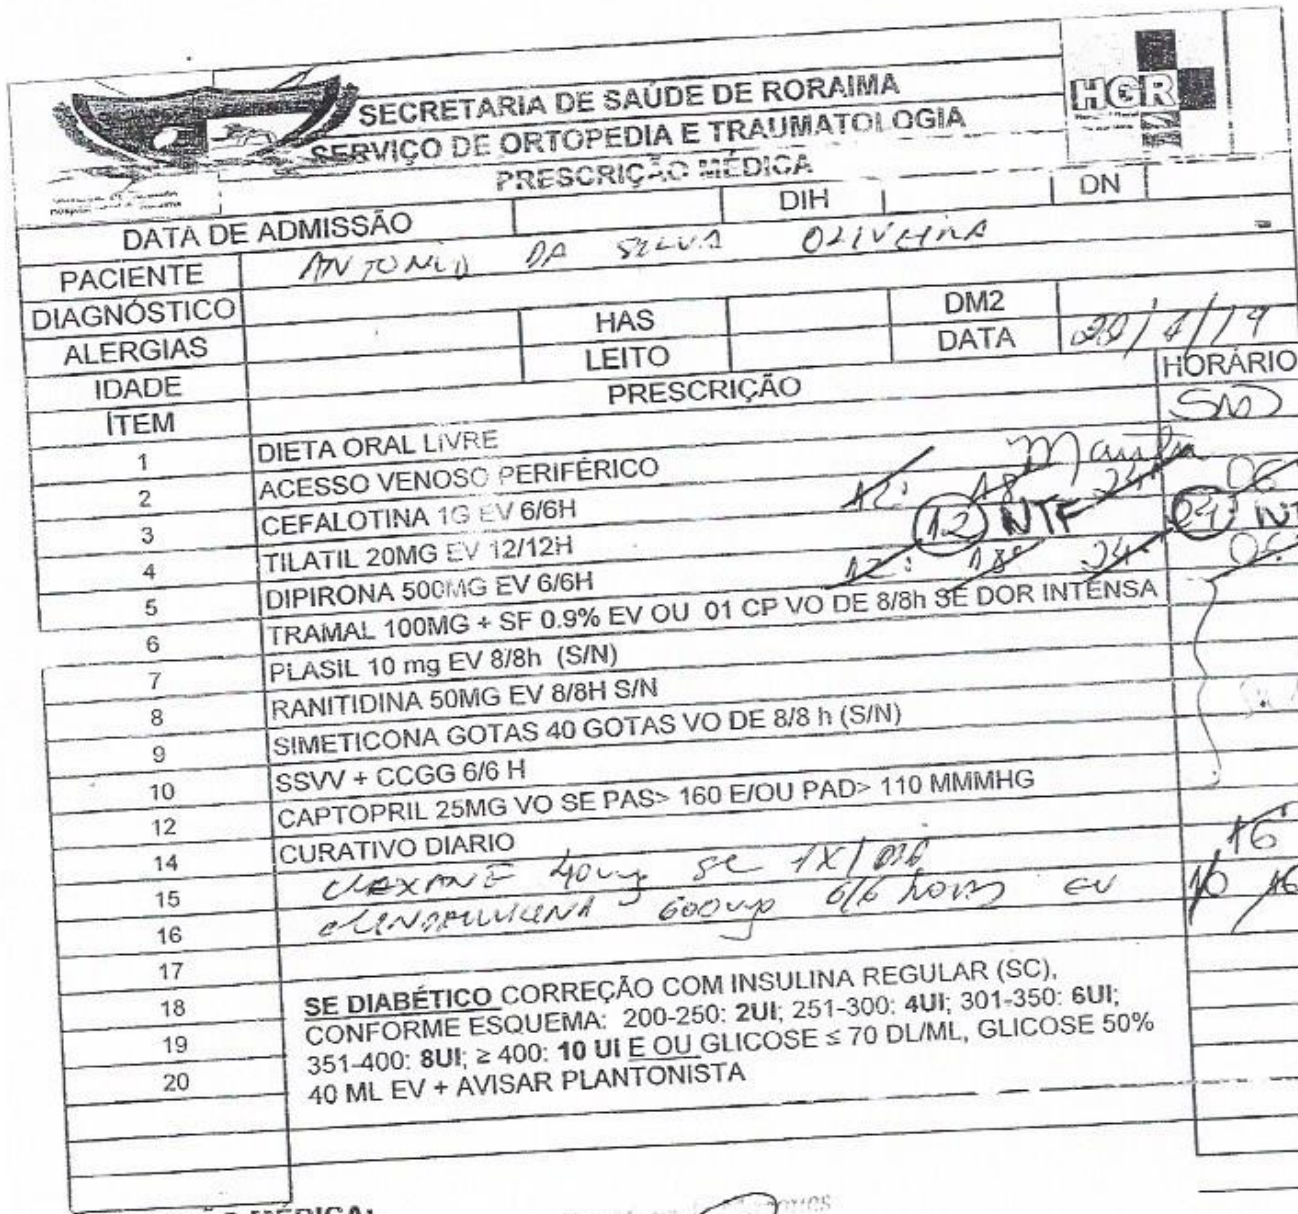 SECRETARIA DE SAÚDE DE RORAIMA
HGR
SERVIÇO DE ORTOPEDIA E TRAUMATOLOGIA
PRESCRIÇÃO MÉDICA
DATA DE ADMISSÃO DIH DN
PACIENTE ANTONIO DA SILVA OLIVEIRA
DIAGNÓSTICO
ALERGIAS HAS DM2
IDADE LEITO DATA 20/4/19
ÍTEM PRESCRIÇÃO HORÁRIO
1 DIETA ORAL LIVRE SND
2 ACESSO VENOSO PERIFÉRICO
3 CEFALOTINA 1G EV 6/6H 12: 18 24 06
4 TILATIL 20MG EV 12/12H 12 NTF 24
5 DIPIRONA 500MG EV 6/6H 12: 18 24
6 TRAMAL 100MG + SF 0.9% EV OU 01 CP VO DE 8/8h SE DOR INTENSA
7 PLASIL 10 mg EV 8/8h (S/N)
8 RANITIDINA 50MG EV 8/8H S/N
9 SIMETICONA GOTAS 40 GOTAS VO DE 8/8 h (S/N)
10 SSVV + CCGG 6/6 H
12 CAPTOPRIL 25MG VO SE PAS> 160 E/OU PAD> 110 MMMHG
14 CURATIVO DIARIO
15 CLEXANE 40mg SC 1X/DIA 16
16 CLINDAMICINA 600mg 6/6 horas EV 10 16
17
18 SE DIABÉTICO CORREÇÃO COM INSULINA REGULAR (SC),
19 CONFORME ESQUEMA: 200-250: 2UI; 251-300: 4UI; 301-350: 6UI;
20 351-400: 8UI; ≥ 400: 10 UI E OU GLICOSE ≤ 70 DL/ML, GLICOSE 50%
40 ML EV + AVISAR PLANTONISTA
MÉDICA: